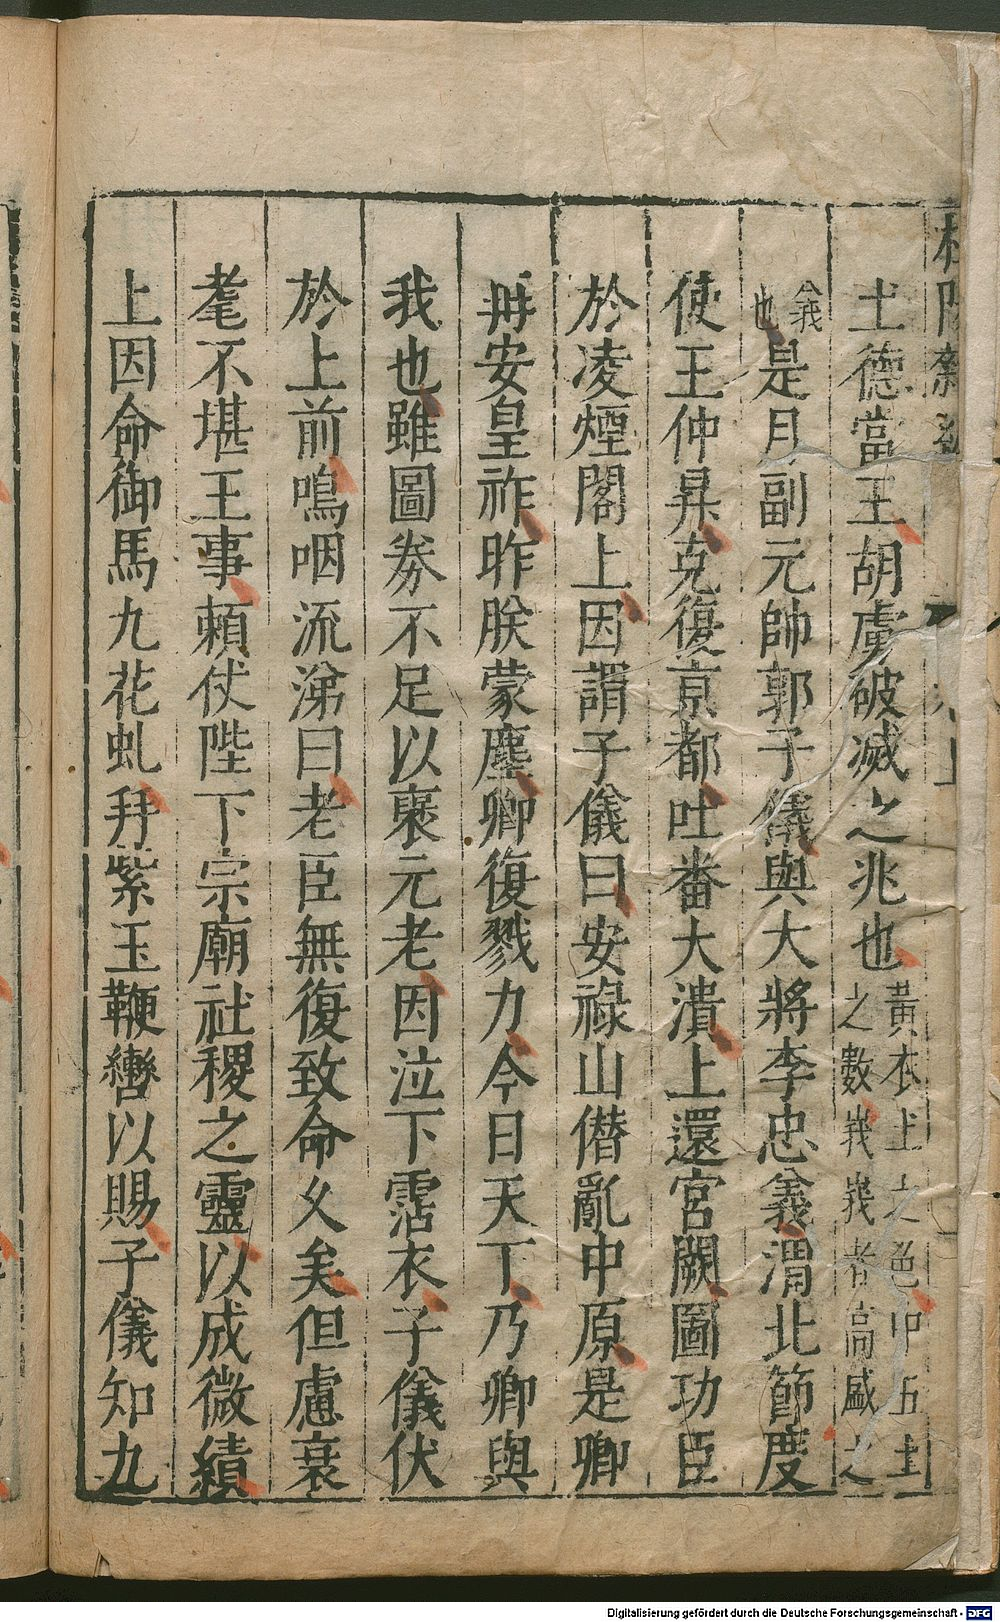 土德當王胡虜破滅之兆也黃衣土之色中五土之數峩峩者高盛之
義也是月副元帥郭子儀與大將李忠義渭北節度
使王仲昇克復京都吐番大潰上還宮闕圖功臣
於凌煙閣上因謂子儀曰安祿山僣亂中原是卿
再安皇祚昨朕蒙塵卿復戮力今日天下乃卿與
我也雖圖券不足以襃元老因泣下霑衣子儀伏
於上前嗚咽流涕曰老臣無復致命乆矣但慮衰
耄不堪王事賴仗陛下宗廟社稷之靈以成微績
上因命御馬九花虬并紫玉鞭轡以賜子儀知九
Digitalisierung gefördert durch die Deutsche Forschungsgemeinschaft - DFG